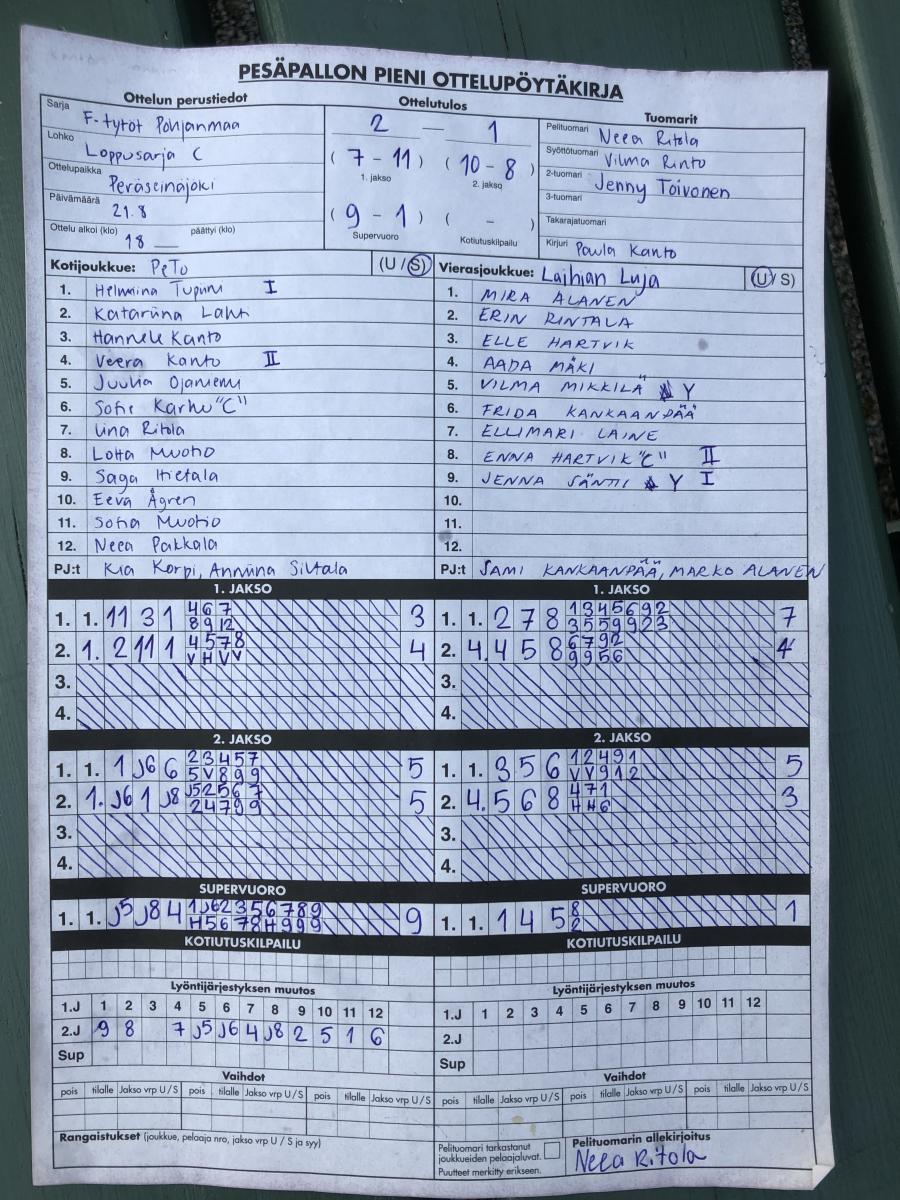 PESÄPALLON PIENI OTTELUPÖYTÄKIRJA
Ottelun perustiedot
Sarja F-tytöt Pohjanmaa
Lohko Loppusarja C
Ottelupaikka Peräseinäjoki
Päivämäärä 21.8
Ottelu alkoi (klo) 18 päättyi (klo)
Ottelutulos
2 — 1
( 7 - 11 ) ( 10 - 8 )
1. jakso 2. jakso
( 9 - 1 ) ( - )
Supervuoro Kotiutuskilpailu
Tuomarit
Pelituomari Neea Ritola
Syöttötuomari Vilma Rinto
2-tuomari Jenny Toivonen
3-tuomari
Takarajatuomari
Kirjuri Paula Kanto
Kotijoukkue: PeTo (U / S)
1. Helmiina Tupuru I
2. Katariina Lahti
3. Hannele Kanto
4. Veera Kanto II
5. Juulia Ojaniemi
6. Sofie Karhu "C"
7. Iina Ritola
8. Lotta Muotio
9. Saga Hietala
10. Eeva Ågren
11. Sofia Muotio
12. Neea Pakkala
PJ:t Kia Korpi, Anniina Siltala
Vierasjoukkue: Laihian Luja (U / S)
1. MIRA ALANEN
2. ERIN RINTALA
3. ELLE HARTVIK
4. AADA MÄKI
5. VILMA MIKKILÄ Y
6. FRIDA KANKAANPÄÄ
7. ELLIMARI LAINE
8. ENNA HARTVIK "C" II
9. JENNA SÄNTTI Y I
10.
11.
12.
PJ:t SAMI KANKAANPÄÄ, MARKO ALANEN
1. JAKSO
1. 1. 11 3 1 4 6 7 3
8 9 12
2. 1. 2 11 1 4 5 7 8 4
V H V V
3.
4.
1. JAKSO
1. 1. 2 7 8 1 3 4 5 6 9 2 7
3 5 5 9 9 2 3
2. 4. 4 5 8 6 7 9 2 4
9 9 5 6
3.
4.
2. JAKSO
1. 1. 1 J6 6 2 3 4 5 7 5
5 V 8 9 9
2. 1. J6 1 J8 J5 2 5 6 7 5
2 4 7 9 9
3.
4.
2. JAKSO
1. 1. 3 5 6 1 2 4 9 1 5
V V 9 1 2
2. 4. 5 6 8 4 7 1 3
H H 6
3.
4.
SUPERVUORO
1. 1. J5 J8 4 1 J6 2 3 5 6 7 8 9 9
H 5 6 7 8 H 9 9 9
SUPERVUORO
1. 1. 1 4 5 8 1
2
KOTIUTUSKILPAILU
KOTIUTUSKILPAILU
Lyöntijärjestyksen muutos
1.J 1 2 3 4 5 6 7 8 9 10 11 12
2.J 9 8 7 J5 J6 4 J8 2 5 1 6
Sup
Lyöntijärjestyksen muutos
1.J 1 2 3 4 5 6 7 8 9 10 11 12
2.J
Sup
Vaihdot
pois tilalle Jakso vrp U / S pois tilalle Jakso vrp U / S pois tilalle Jakso vrp U / S
Vaihdot
pois tilalle Jakso vrp U / S pois tilalle Jakso vrp U / S pois tilalle Jakso vrp U / S
Rangaistukset (joukkue, pelaaja nro, jakso vrp U / S ja syy)
Pelituomari tarkastanut
joukkueiden pelaajaluvat.
Puutteet merkitty erikseen.
Pelituomarin allekirjoitus
Neea Ritola